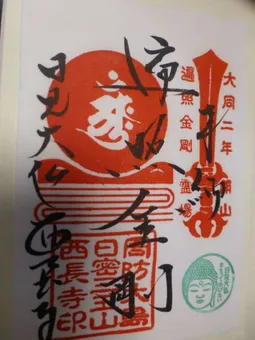 大同二年開山
遍照金剛霊場
奉納
遍照金剛
日見大仏 西長寺
周防大島
西長寺印